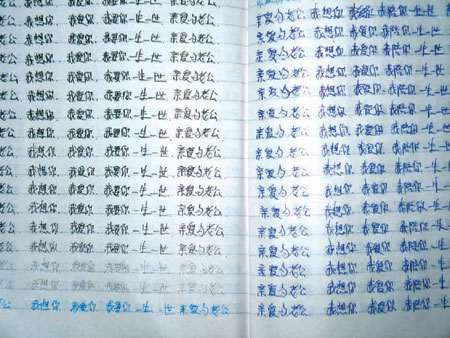 老公 我想你 我爱你 我要你一生一世 亲爱的老公
老公 我想你 我爱你 我要你一生一世 亲爱的老公
老公 我想你 我爱你 我要你一生一世 亲爱的老公
老公 我想你 我爱你 我要你一生一世 亲爱的老公
老公 我想你 我爱你 我要你一生一世 亲爱的老公
老公 我想你 我爱你 我要你一生一世 亲爱的老公
老公 我想你 我爱你 我要你一生一世 亲爱的老公
老公 我想你 我爱你 我要你一生一世 亲爱的老公
老公 我想你 我爱你 我要你一生一世 亲爱的老公
老公 我想你 我爱你 我要你一生一世 亲爱的老公
老公 我想你 我爱你 我要你一生一世 亲爱的老公
老公 我想你 我爱你 我要你一生一世 亲爱的老公
老公 我想你 我爱你 我要你一生一世 亲爱的老公
老公 我想你 我爱你 我要你一生一世 亲爱的老公
老公 我想你 我爱你 我要你一生一世 亲爱的老公
公 我想你 我爱你 我要你一生一世 亲爱的老公
亲爱的老公 我想你 我爱你 我陪你一生一世
亲爱的老公 我想你 我爱你 我陪你一生一世
亲爱的老公 我想你 我爱你 我陪你一生一世
亲爱的老公 我想你 我爱你 我陪你一生一
亲爱的老公 我想你 我爱你 我陪你一生一
亲爱的老公 我想你 我爱你 我陪你一生一
亲爱的老公 我想你 我爱你 我陪你一生一
亲爱的老公 我想你 我爱你 我陪你一生一
亲爱的老公 我想你 我爱你 我陪你一生一
亲爱的老公 我想你 我爱你 我陪你一生一
亲爱的老公 我想你 我爱你 我陪你一生一
亲爱的老公 我想你 我爱你 我陪你一生一
亲爱的老公 我想你 我爱你 我陪你一生
亲爱的老公 我想你 我爱你 我陪你一生
亲爱的老公 我想你 我爱你 我陪你一生
亲爱的老公 我想你 我爱你 我陪你一生
亲爱的老公 我想你 我爱你 我陪你一生